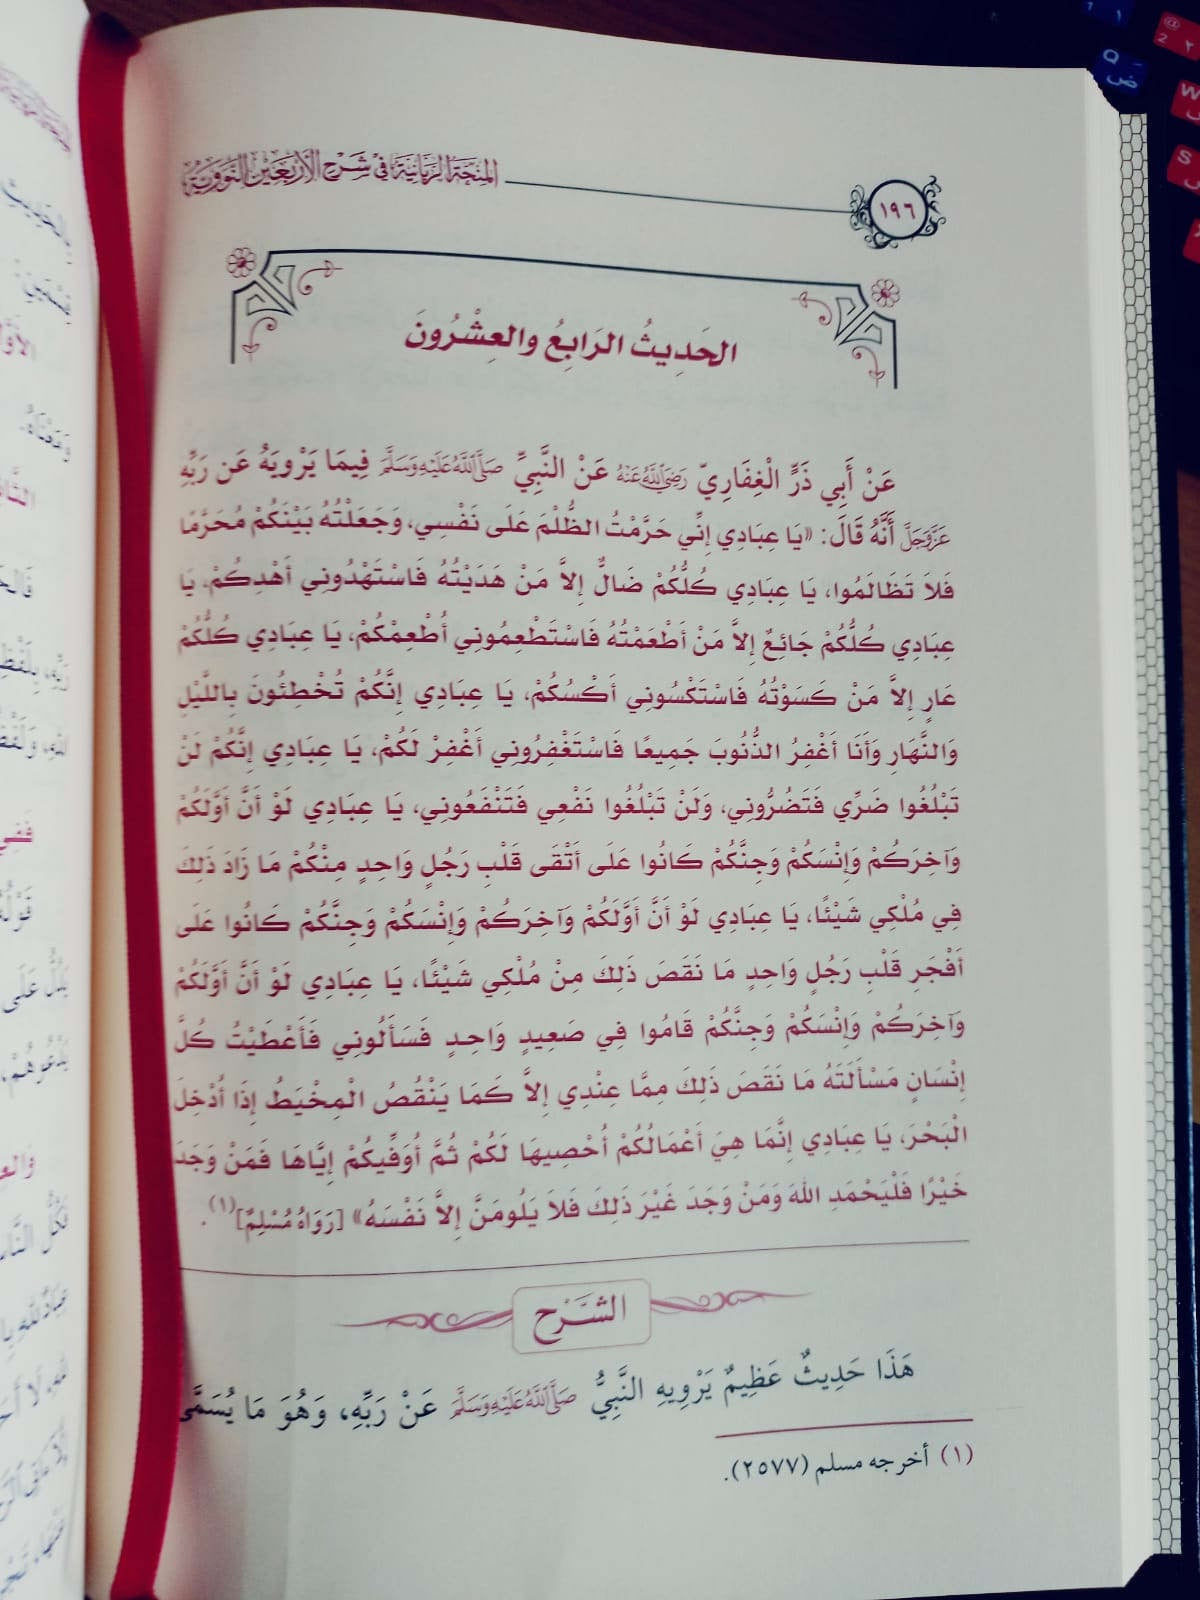 المنحة الربانية في شرح الأربعين النووية
١٩٦
الحَدِيثُ الرَابِعُ والعِشْرُونَ
عَنْ أَبِي ذَرٍّ الْغِفَارِيّ رَضِيَ اللَّهُ عَنْهُ عَنْ النَّبِيِّ صَلَّى اللَّهُ عَلَيْهِ وَسَلَّمَ فِيمَا يَرْوِيَهُ عَن رَبِّهِ
عَزَّ وَجَلَّ أَنَّهُ قَالَ: «يَا عِبَادِي إِنِّي حَرَّمْتُ الظُّلْمَ عَلَى نَفْسِي، وَجَعَلْتُهُ بَيْنَكُمْ مُحَرَّمًا
فَلاَ تَظَالَمُوا، يَا عِبَادِي كُلُّكُمْ ضَالٌّ إِلاَّ مَنْ هَدَيْتُهُ فَاسْتَهْدُونِي أهْدِكُمْ، يَا
عِبَادِي كُلُّكُمْ جَائِعٌ إِلاَّ مَنْ أَطْعَمْتُهُ فَاسْتَطْعِمُونِي أُطْعِمْكُمْ، يَا عِبَادِي كُلُّكُمْ
عَارٍ إِلاَّ مَنْ كَسَوْتُهُ فَاسْتَكْسُونِي أَكْسُكُمْ، يَا عِبَادِي إِنَّكُمْ تُخْطِئُونَ بِاللَّيْلِ
وَالنَّهَارِ وَأَنَا أَغْفِرُ الذُّنُوبَ جَمِيعًا فَاسْتَغْفِرُونِي أَغْفِرْ لَكُمْ، يَا عِبَادِي إِنَّكُمْ لَنْ
تَبْلُغُوا ضَرِّي فَتَضُرُّونِي، وَلَنْ تَبْلُغُوا نَفْعِي فَتَنْفَعُونِي، يَا عِبَادِي لَوْ أَنَّ أَوَّلَكُمْ
وَآخِرَكُمْ وَإِنْسَكُمْ وَجِنَّكُمْ كَانُوا عَلَى أَتْقَى قَلْبِ رَجُلٍ وَاحِدٍ مِنْكُمْ مَا زَادَ ذَلِكَ
فِي مُلْكِي شَيْئًا، يَا عِبَادِي لَوْ أَنَّ أَوَّلَكُمْ وَآخِرَكُمْ وَإِنْسَكُمْ وَجِنَّكُمْ كَانُوا عَلَى
أَفْجَرِ قَلْبِ رَجُلٍ وَاحِدٍ مَا نَقَصَ ذَلِكَ مِنْ مُلْكِي شَيْئًا، يَا عِبَادِي لَوْ أَنَّ أَوَّلَكُمْ
وَآخِرَكُمْ وَإِنْسَكُمْ وَجِنَّكُمْ قَامُوا فِي صَعِيدٍ وَاحِدٍ فَسَأَلُونِي فَأَعْطَيْتُ كُلَّ
إِنْسَانٍ مَسْأَلَتَهُ مَا نَقَصَ ذَلِكَ مِمَّا عِنْدِي إِلاَّ كَمَا يَنْقُصُ الْمِخْيَطُ إِذَا أُدْخِلَ
الْبَحْرَ، يَا عِبَادِي إِنَّمَا هِيَ أَعْمَالُكُمْ أُحْصِيهَا لَكُمْ ثُمَّ أُوَفِّيكُمْ إِيَّاهَا فَمَنْ وَجَدَ
خَيْرًا فَلْيَحْمَدِ اللهَ وَمَنْ وَجَدَ غَيْرَ ذَلِكَ فَلاَ يَلُومَنَّ إِلاَّ نَفْسَهُ» [رَوَاهُ مُسْلِمٌ](١).
الشَّرْح
هَذَا حَدِيثٌ عَظِيمٌ يَرْوِيهِ النَّبِيُّ صَلَّى اللَّهُ عَلَيْهِ وَسَلَّمَ عَنْ رَبِّهِ، وَهُوَ مَا يُسَمَّى
(١) أخرجه مسلم (٢٥٧٧).